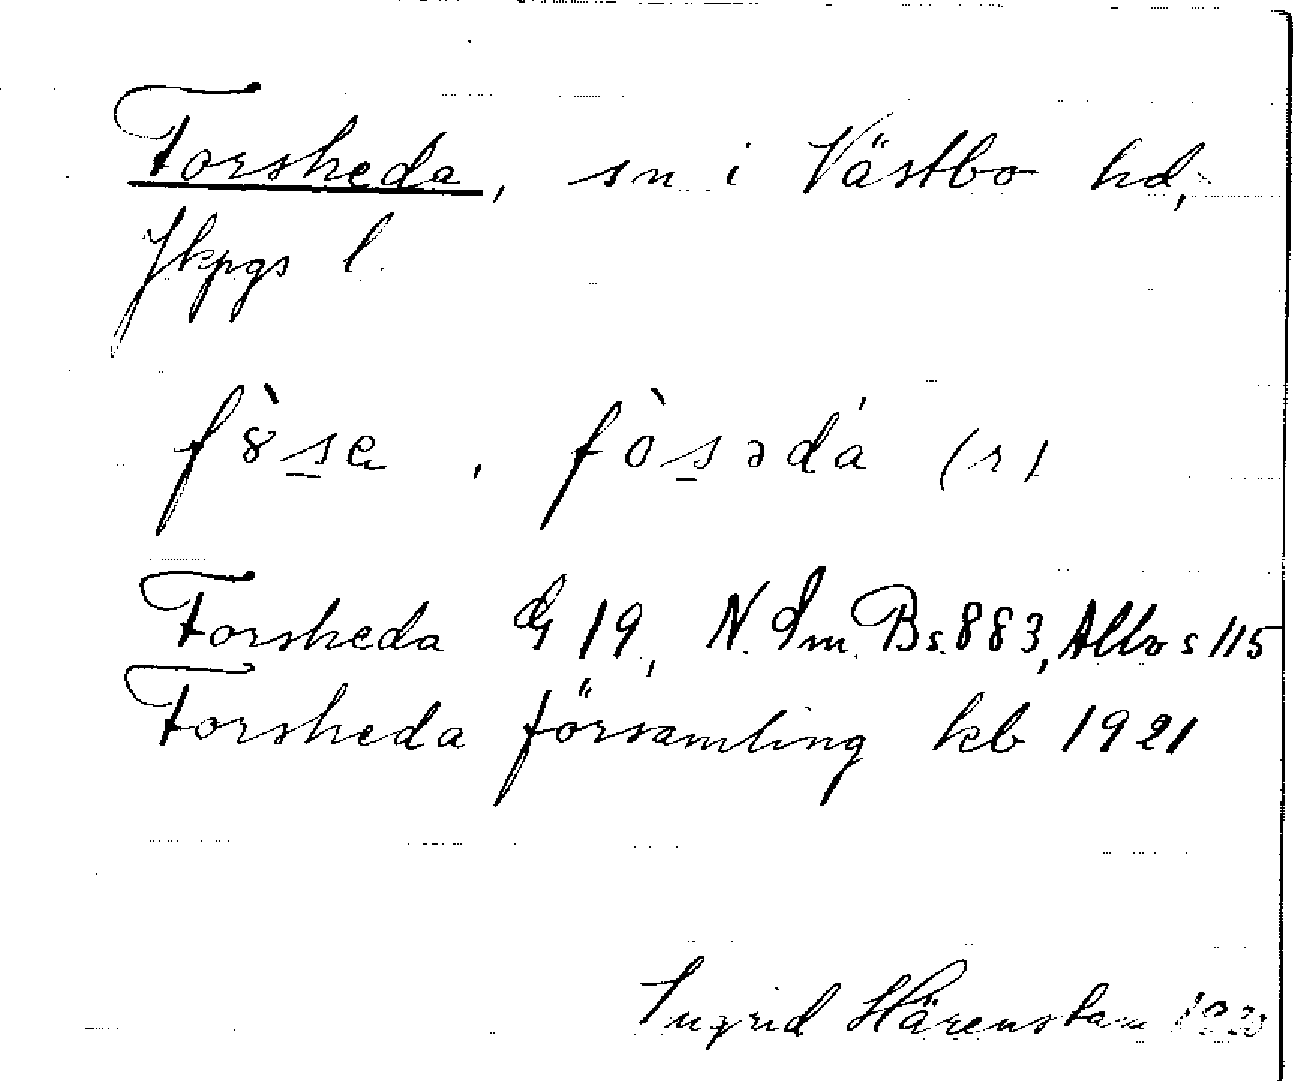 Forsheda, sn i Västbo hd,
Jkpgs l.
fòsədá (s)
Forsheda G 19, N. Sm. B s. 883, Allbo s 115
Forsheda församling kb 1921
Ingrid Härenstam